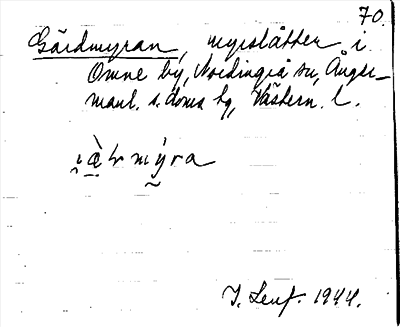 70.
Gärdmyran, myrslåtter i
Omne by, Nordingrå sn, Ånger-
manl. s. doms hg, Västern. l.
J. Lenf. 1944.